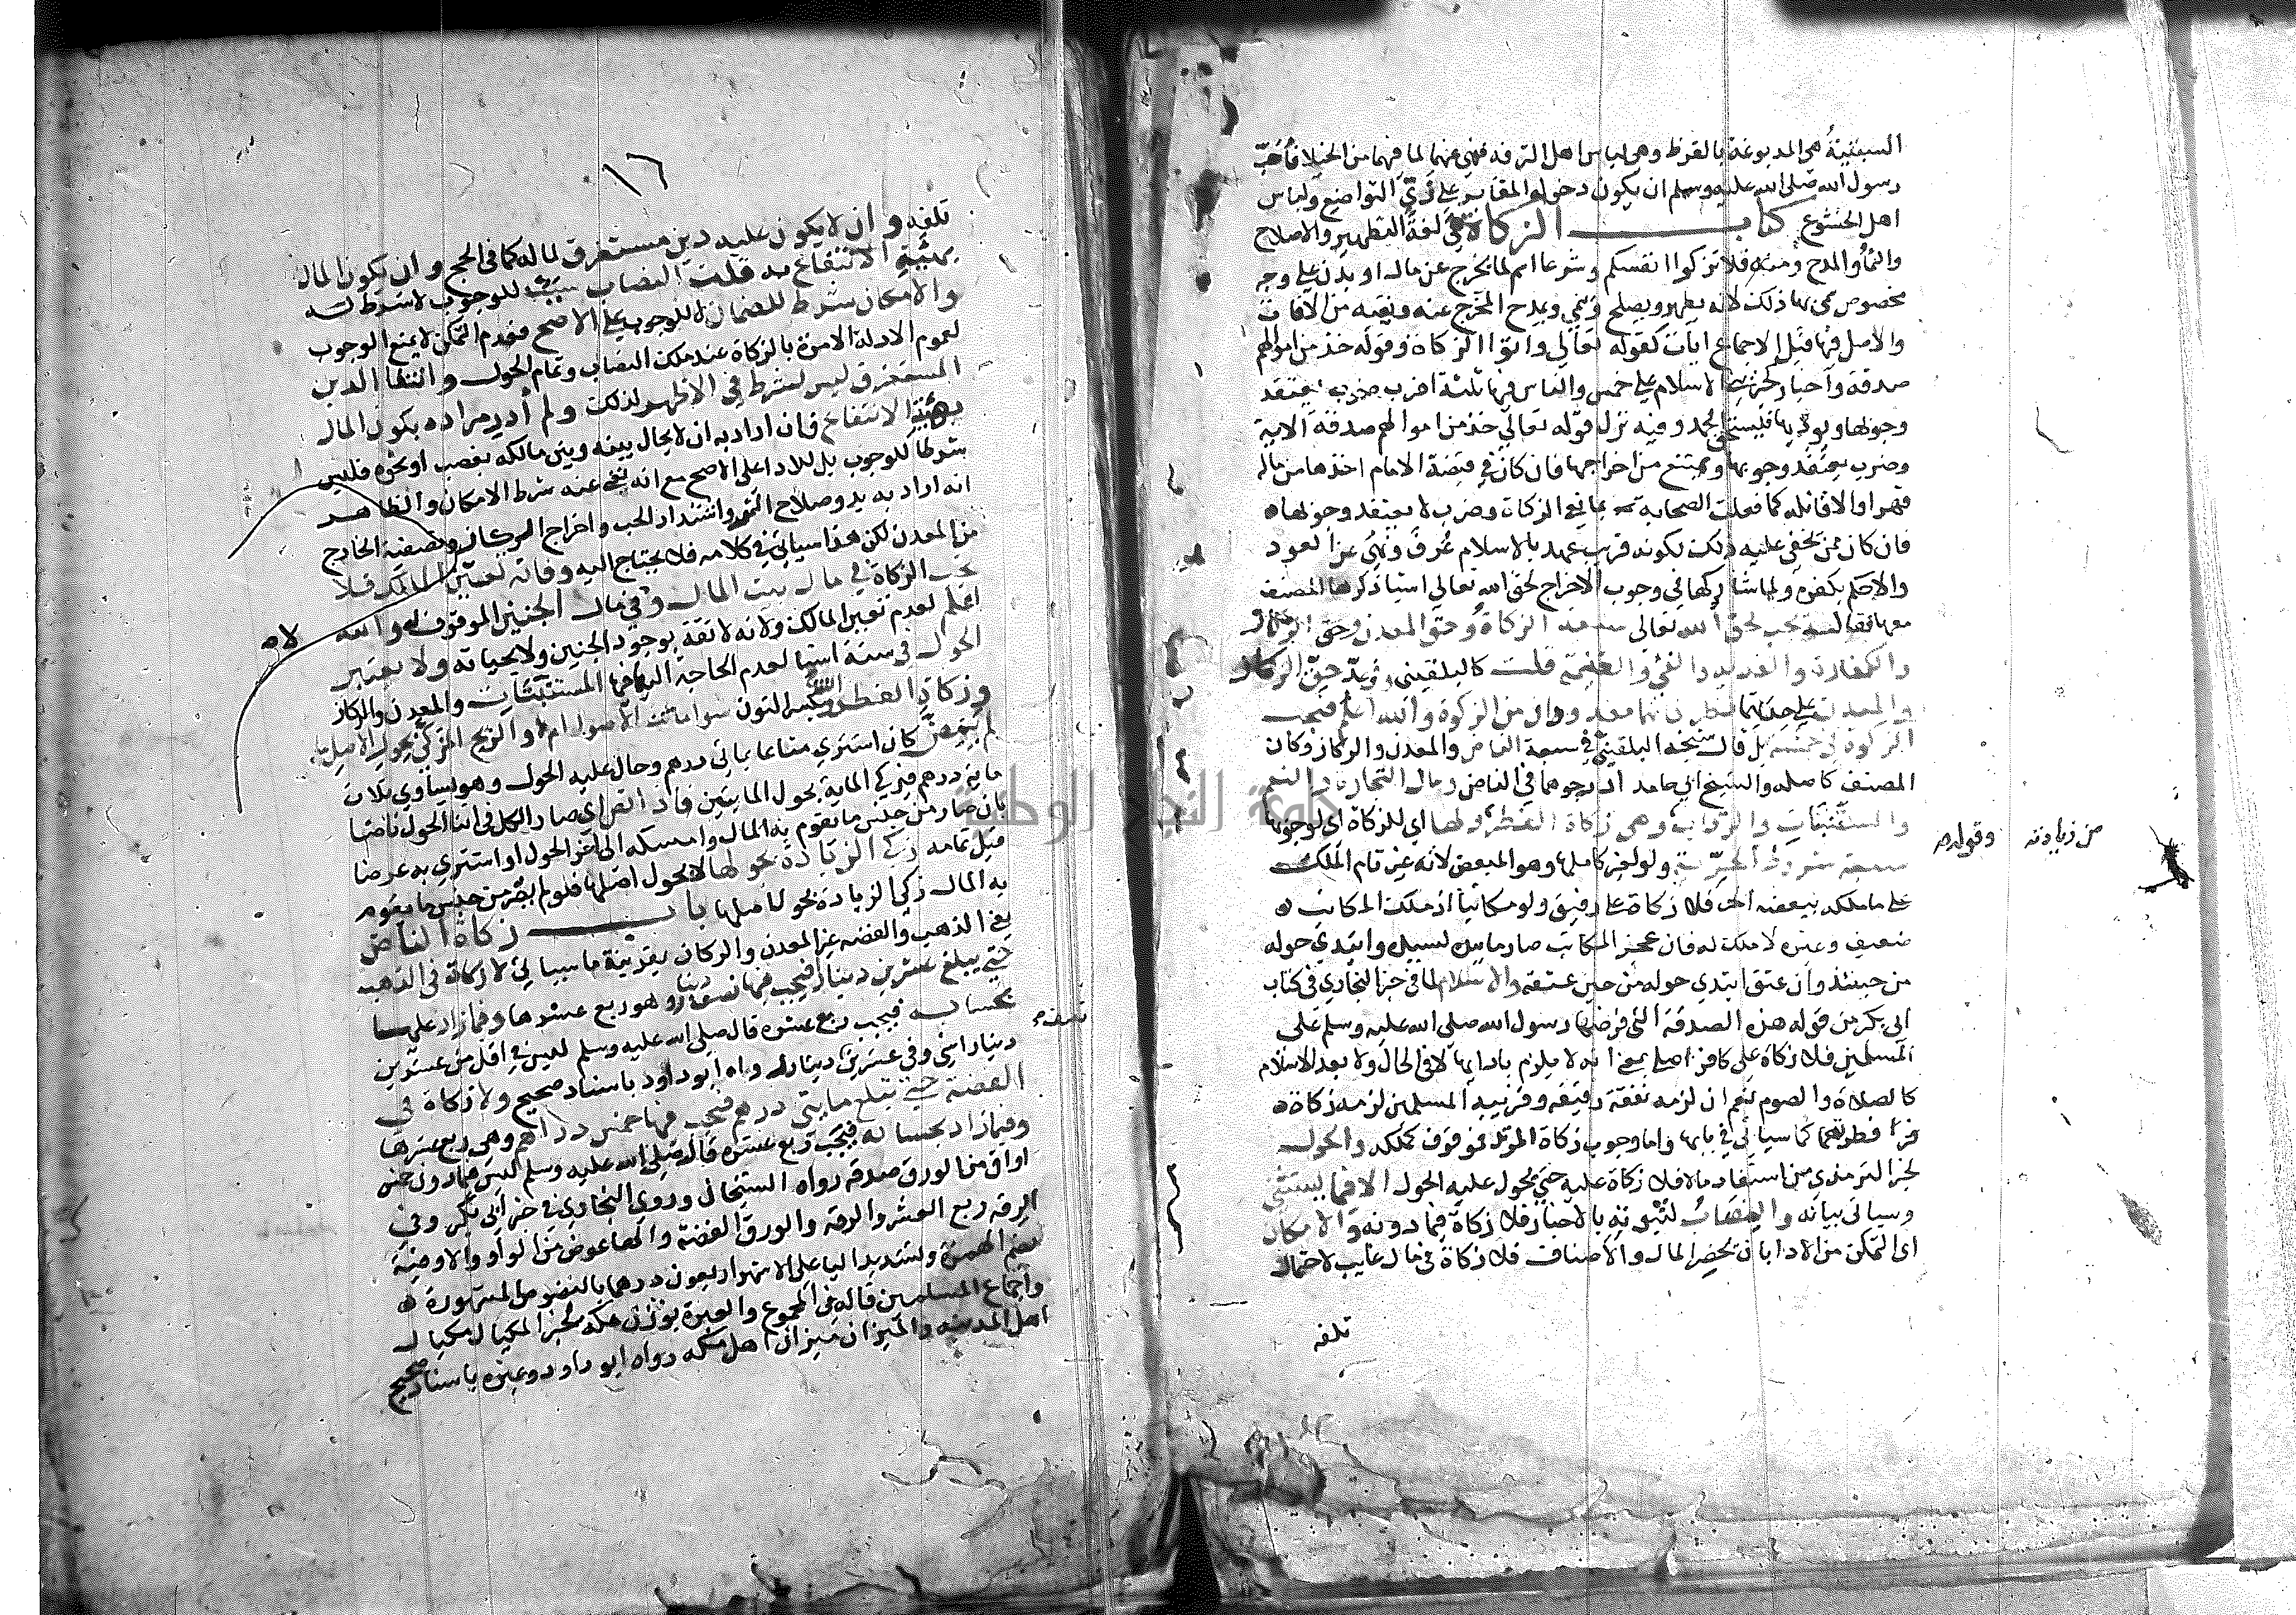 السبتية هي المدبوغة بالقرظ وهي لباس اهل الترفه فنهي عنها لما فيها من الخيلا فاحب
رسول الله صلى الله عليه وسلم ان يكون دخولهم المقابر على زيّ التواضع ولباس
اهل الخشوع كتاب الزكاة هي لغة التطهير والاصلاح
والنمآ والمدح ومنه فلا تزكوا انفسكم وشرعا اسم لما يخرج عن مال او بدن على وجه
مخصوص سمي بها ذلك لانه يطهر ويصلح وينمي ويمدح المخرج عنه ويقيه من الآفات
والاصل فيها قبل الاجماع ايات كقوله تعالى واتوا الزكاة وقوله خذ من اموالهم
صدقة واخبار كخبر بني الاسلام على خمس والناس فيها ثلثة اضرب ضرب يعتقد
وجوبها ويوديها فيستحق الحمد وفيه نزل قوله تعالى خذ من اموالهم صدقة الاية
وضرب يعتقد وجوبها ويمتنع من اخراجها فان كان في قبضة الامام اخذها من ماله
قهرا والا قاتله كما فعلت الصحابة بمانعي الزكاة وضرب لا يعتقد وجوبها
فان كان ممن يخفى عليه ذلك لكونه قريب عهد بالاسلام عُرف ونُهي عن العود
والا حكم بكفره ولما شاركها في وجوب الاخراج لحق الله تعالى اشيا ذكرها المصنف
معها فقال تجب لحق الله تعالى سبعة الزكاة وحق المعدن وحق الركاز
والكفارة والفدية والفي والغنيمة قلت كالبلقيني وفي عدّ حق الركاز
والمعدن على حدتهما نظر لانهما معدودان من الزكوة والله اعلم فتجب
الزكوة في خمسة بل قال شيخه البلقيني في سبعة الناض والمعدن والركاز وكان
المصنف كاصله والشيخ ابي حامد ادرجوهما في الناض ومال التجارة والنعم
والمستنبتات والرقاب وهي زكاة الفطر ولها اي للزكاة اي لوجوبها
من زيادته وقوله
سبعة شروط الحرّية ولو لغير كاملها وهو المبعض لانه غير تام الملك
على ما ملكه ببعضه الحر فلا زكاة على رقيق ولو مكاتبا اذ ملك المكاتب
ضعيف وغيره لا ملك له فان عجز المكاتب صار ما بيده لسيده وابتدي حوله
من حينئذ وان عتق ابتدي حوله من حين عتقه والاسلام لما في خبر البخاري في كتاب
ابي بكر من قوله هذه الصدقة التي فرضها رسول الله صلى الله عليه وسلم على
المسلمين فلا زكاة على كافر اصلي بمعنى انه لا يلزم بادايها لا في الحال ولا بعد الاسلام
كالصلاة والصوم نعم ان لزمه نفقة رقيقه وقريبه المسلمين لزمه زكاة
فطرتهما كما سياتي في بابها واما وجوب زكاة المرتد فموقوف كملكه والحول
لخبر الترمذي من استفاد مالا فلا زكاة عليه حتى يحول عليه الحول الا فيما يستثنى
وسياتي بيانه والنصاب لثبوته بالاخبار فلا زكاة فيما دونه والامكان
اي التمكن من الادا بان يحضر المال والاصناف فلا زكاة في مال غايب لاحتمال
تلفه
١٦
تلفه وان لا يكون عليه دين مستغرق لماله كما في الحج وان يكون المال
بهيئة الانتفاع به قلت النصاب سبب للوجوب لا شرط له
والامكان شرط للضمان لا للوجوب على الاصح فعدم التمكن لا يمنع الوجوب
لعموم الادلة الامرة بالزكاة عند ملك النصاب وتمام الحول وانتفا الدين
المستغرق ليس بشرط في الاظهر لذلك ولم أدر مراده بكون المال
بهيئة الانتفاع فان اراد به ان لا يحال بينه وبين مالكه بغصب او نحوه فليس
شرطا للوجوب بل للادا على الاصح مع انه يغني عنه شرط الامكان والظاهر
انه اراد به بدو صلاح الثمر واشتداد الحب واخراج الركاز وتصفية الخارج
من المعدن لكن هذا سياتي في كلامه فلا يحتاج اليه وفاته تعيين المالك فلا
تجب الزكاة في مال بيت المال وفي مال الجنين الموقوف له والله
اعلم لعدم تعين المالك ولانه لا ثقة بوجود الجنين ولا بحياته ولا يعتبر
الحول في ستة اشيا لعدم الحاجة اليه فيها المستنبتات والمعدن والركاز
وزكاة الفطر والسخال سوا ماتت الاصول ام لا والربح المزكى بحول الاصل
لم ينض كان اشترى متاعا بمايتي درهم وحال عليه الحول وهو يساوي ثلاث
ماية درهم فيزكي الماية بحول المايتين فان نض اي صار الكل في اثنا الحول ناضا
بان صار من جنس ما يقوم به المال وامسكه الى اخر الحول او اشترى به عرضا
قبل تمامه زكى الزيادة بحولها لا بحول اصلها فلو لم يصر من جنس ما يقوم
به المال زكى الزيادة بحول اصلها باب زكاة الناض
يعني الذهب والفضة غير المعدن والركاز بقرينة ما سياتي لا زكاة في الذهب
حتى يبلغ عشرين دينارا فيجب فيها نصف دينار وهو ربع عشرها وفيما زاد عليها
بحسابه فيجب ربع عشره قال صلى الله عليه وسلم ليس في اقل من عشرين
دينارا شي وفي عشرين نصف دينار رواه ابو داود باسناد صحيح ولا زكاة في
الفضة حتى تبلغ مايتي درهم فيجب فيها خمس دراهم وهي ربع عشرها
وفيما زاد بحسابه فيجب ربع عشره قال صلى الله عليه وسلم ليس فيما دون خمس
اواق من الورق صدقة رواه الشيخان وروى البخاري في خبر ابي بكر وفي
الرقة ربع العشر والرقة والورق الفضة والهاء عوض من الواو والاوقية
بضم الهمزة وتشديد اليا على الاشهر اربعون درهما بالنصوص المشهورة
واجماع المسلمين قاله في المجموع والعبرة بوزن مكة لخبر المكيال مكيال
اهل المدينة والميزان ميزان اهل مكة رواه ابو داود وغيره باسناد صحيح